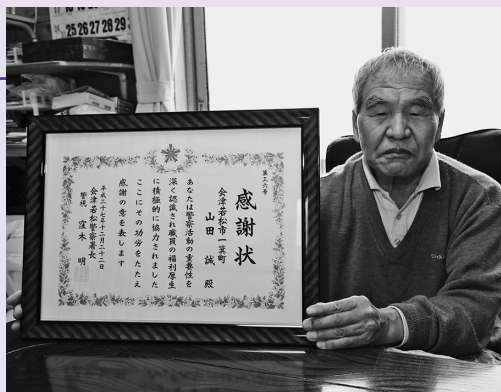 25 26 27 28 29
第三六号
感謝状
会津若松市一箕町
山田 誠 殿
あなたは警察活動の重要性を
深く認識され職員の福利厚生
に積極的に協力されました
ここにその功労をたたえ
感謝の意を表します
平成二十七年十二月二十二日
会津若松警察署長
警視 窪木 明